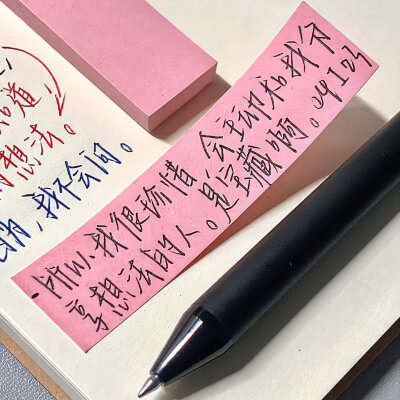 道
想法。
我不会问。
所以,我很珍惜 会主动和我分
享想法的人。是宝藏啊。041024